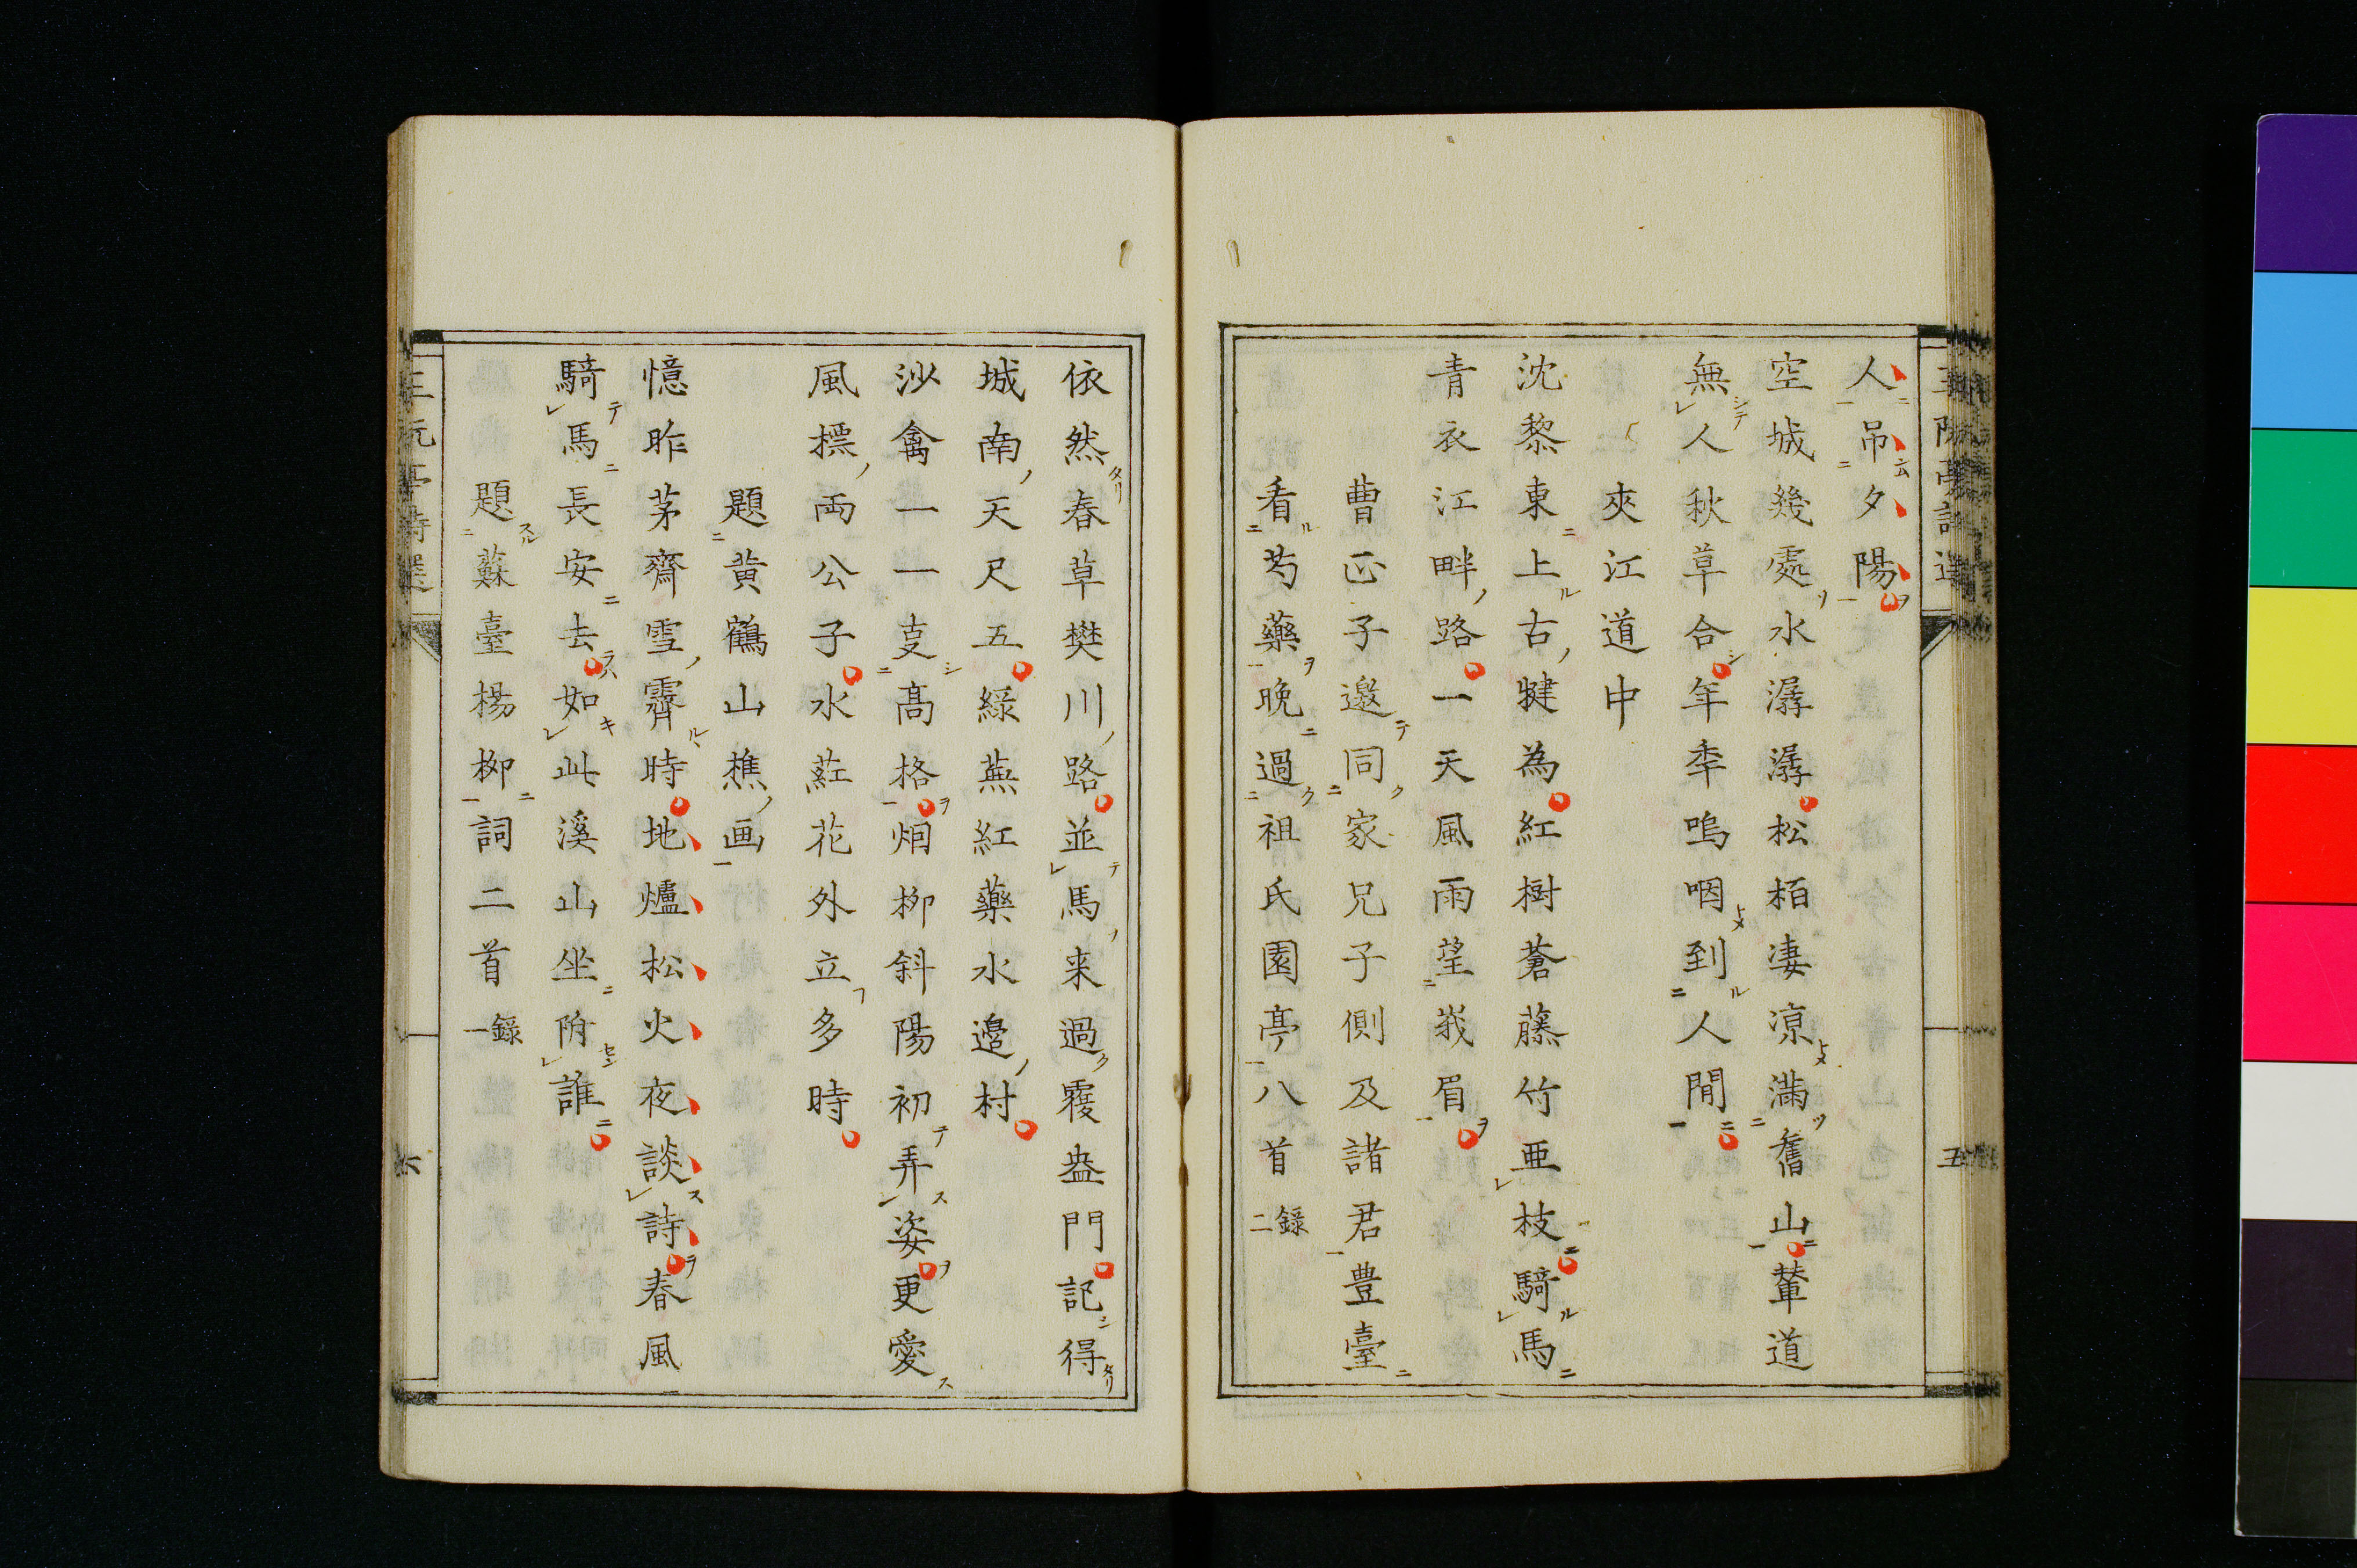 人吊夕陽
空城幾處水潺潺松栢凄凉滿舊山輦道
無人秋草合年季嗚咽到人間
夾江道中
沈黎東上古犍為紅樹蒼藤竹亜枝騎馬
青衣江畔路一天風雨望峩眉
曹正子邀同家兄子側及諸君豊臺
看芍藥晚過祖氏園亭八首錄二
五
依然春草樊川路並馬来過覆盎門記得
城南天尺五綠蕪紅藥水邉村
沙禽一一支髙格烟柳斜陽初弄姿更愛
風標両公子水葒花外立多時
題黄鶴山樵画
憶昨茅齋雪霽時地爐松火夜談詩春風
騎馬長安去如此溪山坐附誰
題蘇臺楊柳詞二首錄一
王阮亭詩選
六